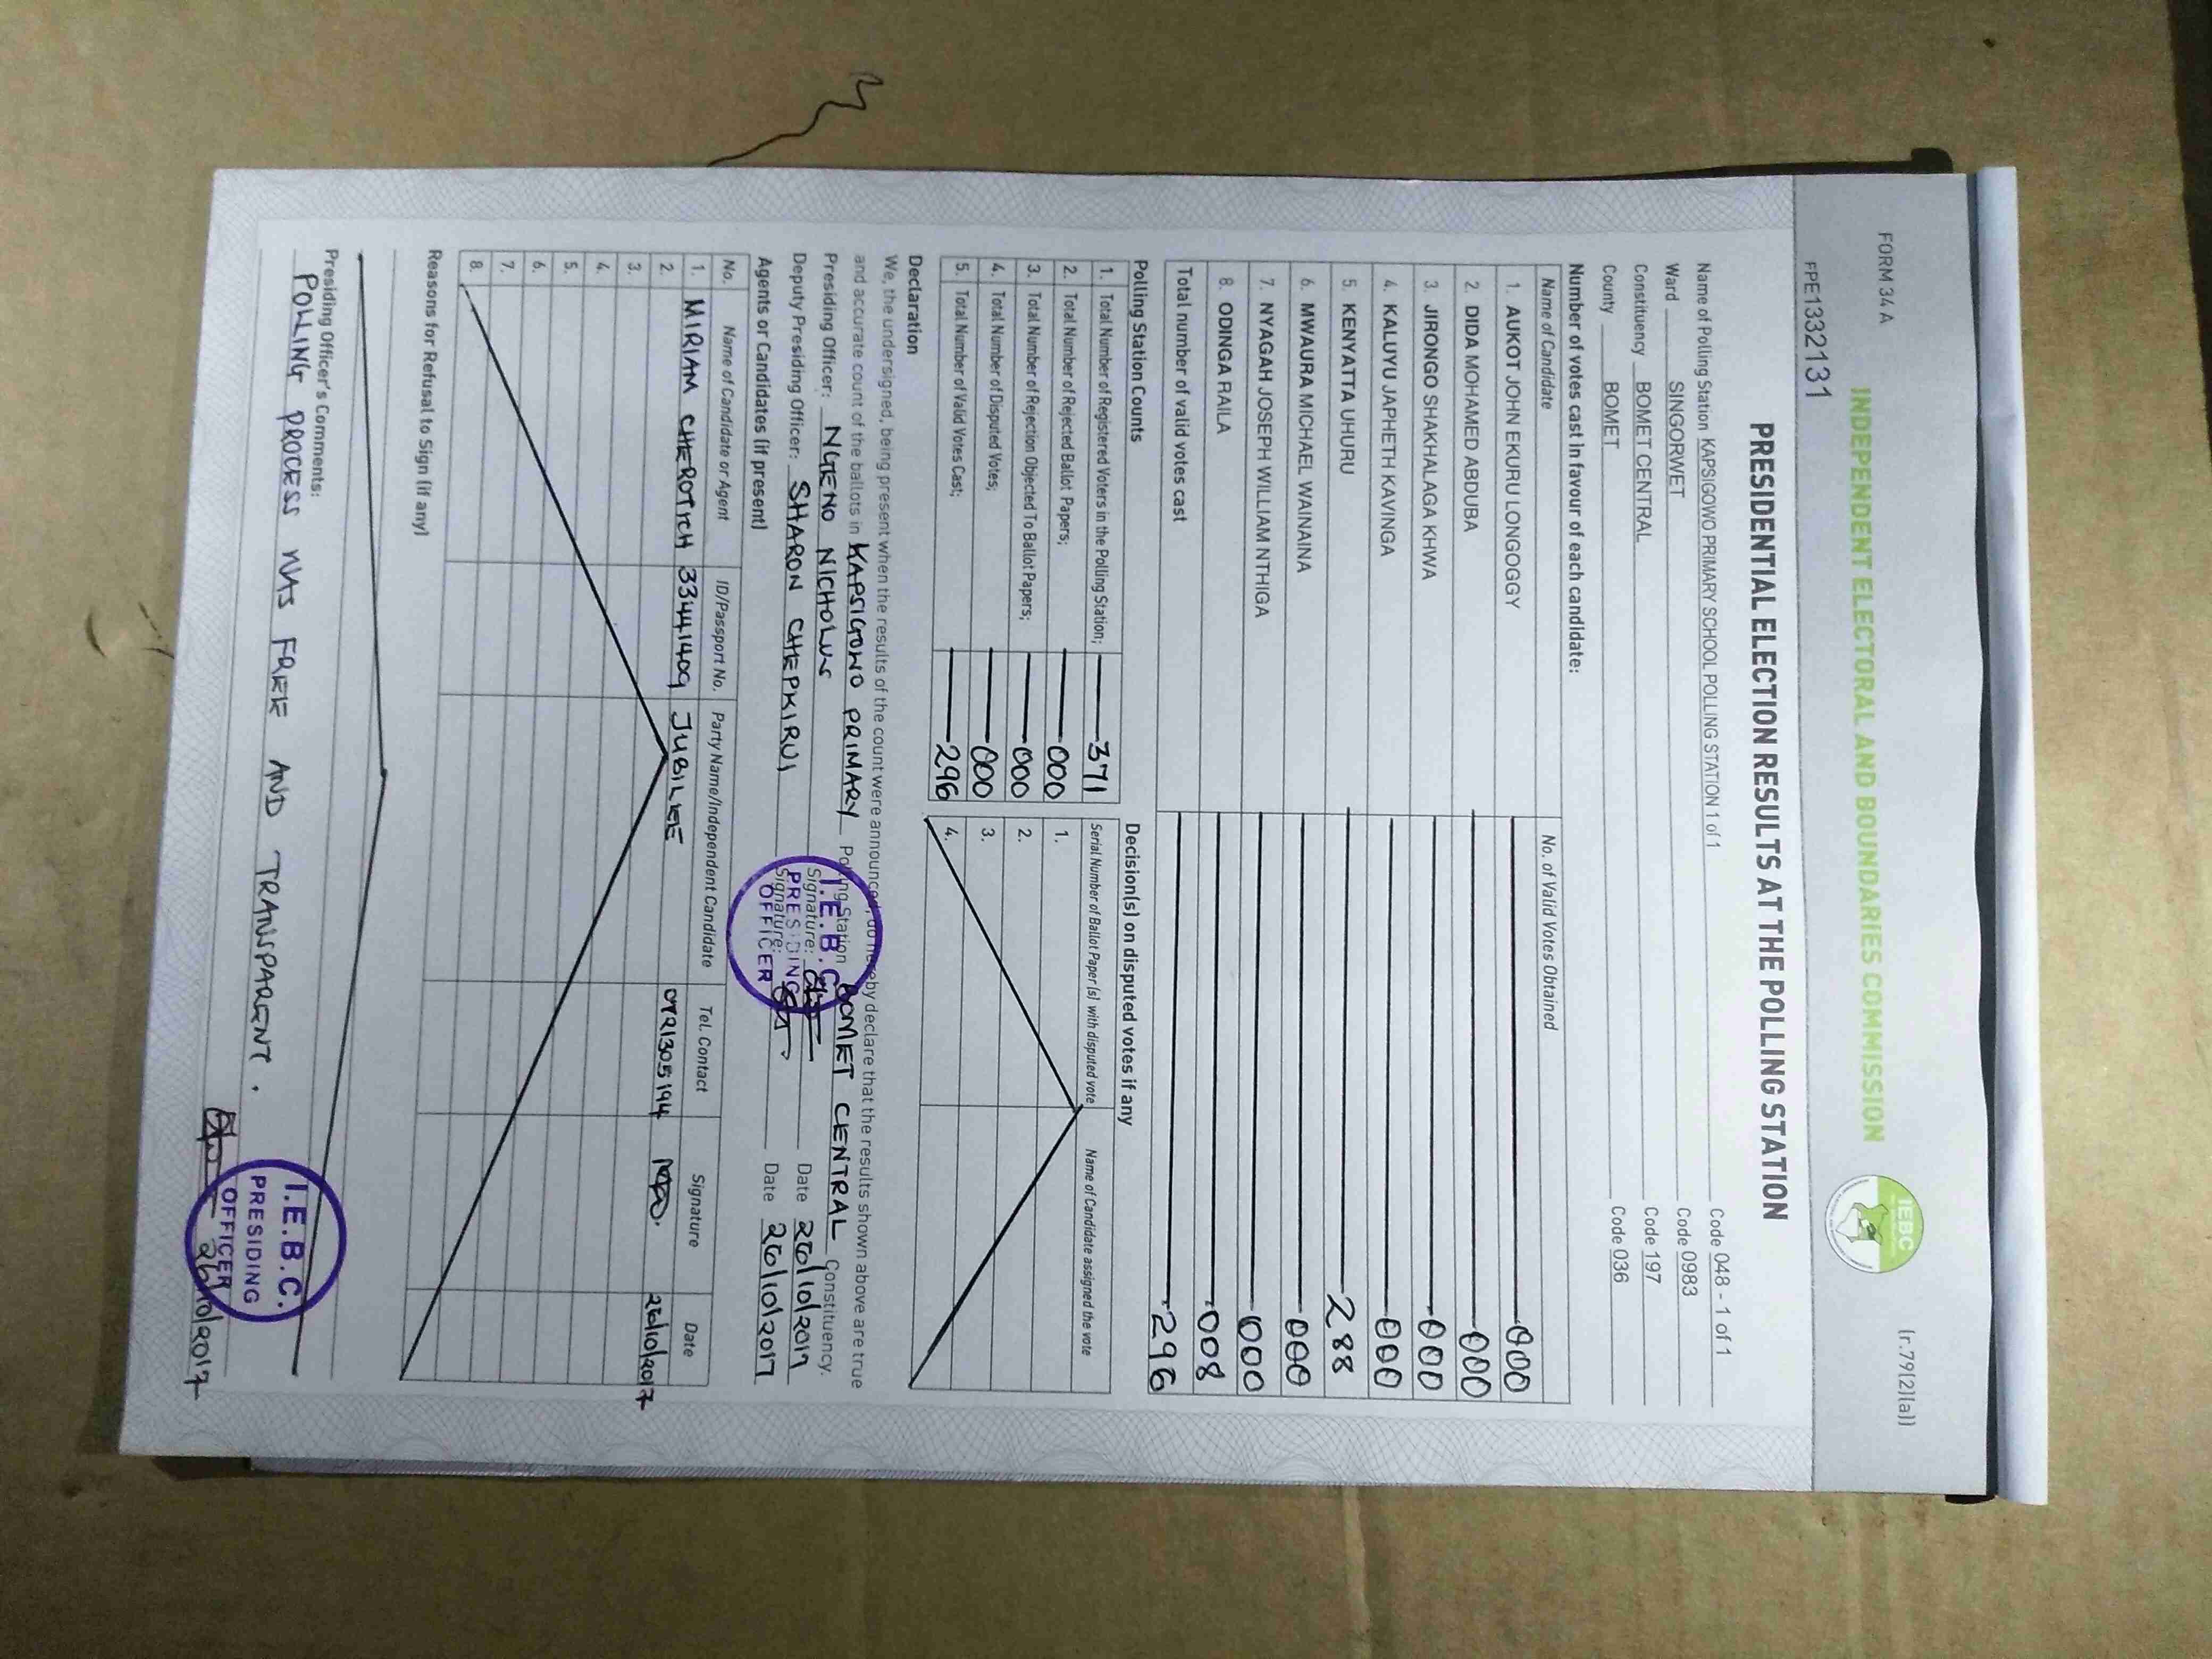 FORM 34 A
(r.79(2)(a))
INDEPENDENT ELECTORAL AND BOUNDARIES COMMISSION
IEBC
FPE1332131
PRESIDENTIAL ELECTION RESULTS AT THE POLLING STATION
Name of Polling Station KAPSIGOWO PRIMARY SCHOOL POLLING STATION 1 of 1 Code 048 - 1 of 1
Ward SINGORWET Code 0983
Constituency BOMET CENTRAL Code 197
County BOMET Code 036
Number of votes cast in favour of each candidate:
Name of Candidate No. of Valid Votes Obtained
1. AUKOT JOHN EKURU LONGOGGY 000
2. DIDA MOHAMED ABDUBA 000
3. JIRONGO SHAKHALAGA KHWA 000
4. KALUYU JAPHETH KAVINGA 000
5. KENYATTA UHURU 288
6. MWAURA MICHAEL WAINAINA 000
7. NYAGAH JOSEPH WILLIAM NTHIGA 000
8. ODINGA RAILA 008
Total number of valid votes cast 296
Polling Station Counts
1. Total Number of Registered Voters in the Polling Station; 371
2. Total Number of Rejected Ballot Papers; 000
3. Total Number of Rejection Objected To Ballot Papers; 000
4. Total Number of Disputed Votes; 000
5. Total Number of Valid Votes Cast; 296
Decision(s) on disputed votes if any
Serial Number of Ballot Paper(s) with disputed vote Name of Candidate assigned the vote
1.
2.
3.
4.
Declaration
We, the undersigned, being present when the results of the count were announced, do hereby declare that the results shown above are true
and accurate count of the ballots in KAPSIGOWO PRIMARY Polling Station BOMET CENTRAL Constituency.
Presiding Officer: NGENO NICHOLUS Signature: Date 26/10/2017
Deputy Presiding Officer: SHARON CHEPKIRUI Signature: Date 26/10/2017
I.E.B.C.
PRESIDING
OFFICER
Agents or Candidates (if present)
No. Name of Candidate or Agent ID/Passport No. Party Name/Independent Candidate Tel. Contact Signature Date
1. MIRIAM CHEROTICH 33441409 JUBILEE 0721305194 26/10/2017
2.
3.
4.
5.
6.
7.
8.
Reasons for Refusal to Sign (if any)
Presiding Officer's Comments:
POLLING PROCESS WAS FREE AND TRANSPARENT.
I.E.B.C.
PRESIDING
OFFICER
26/10/2017